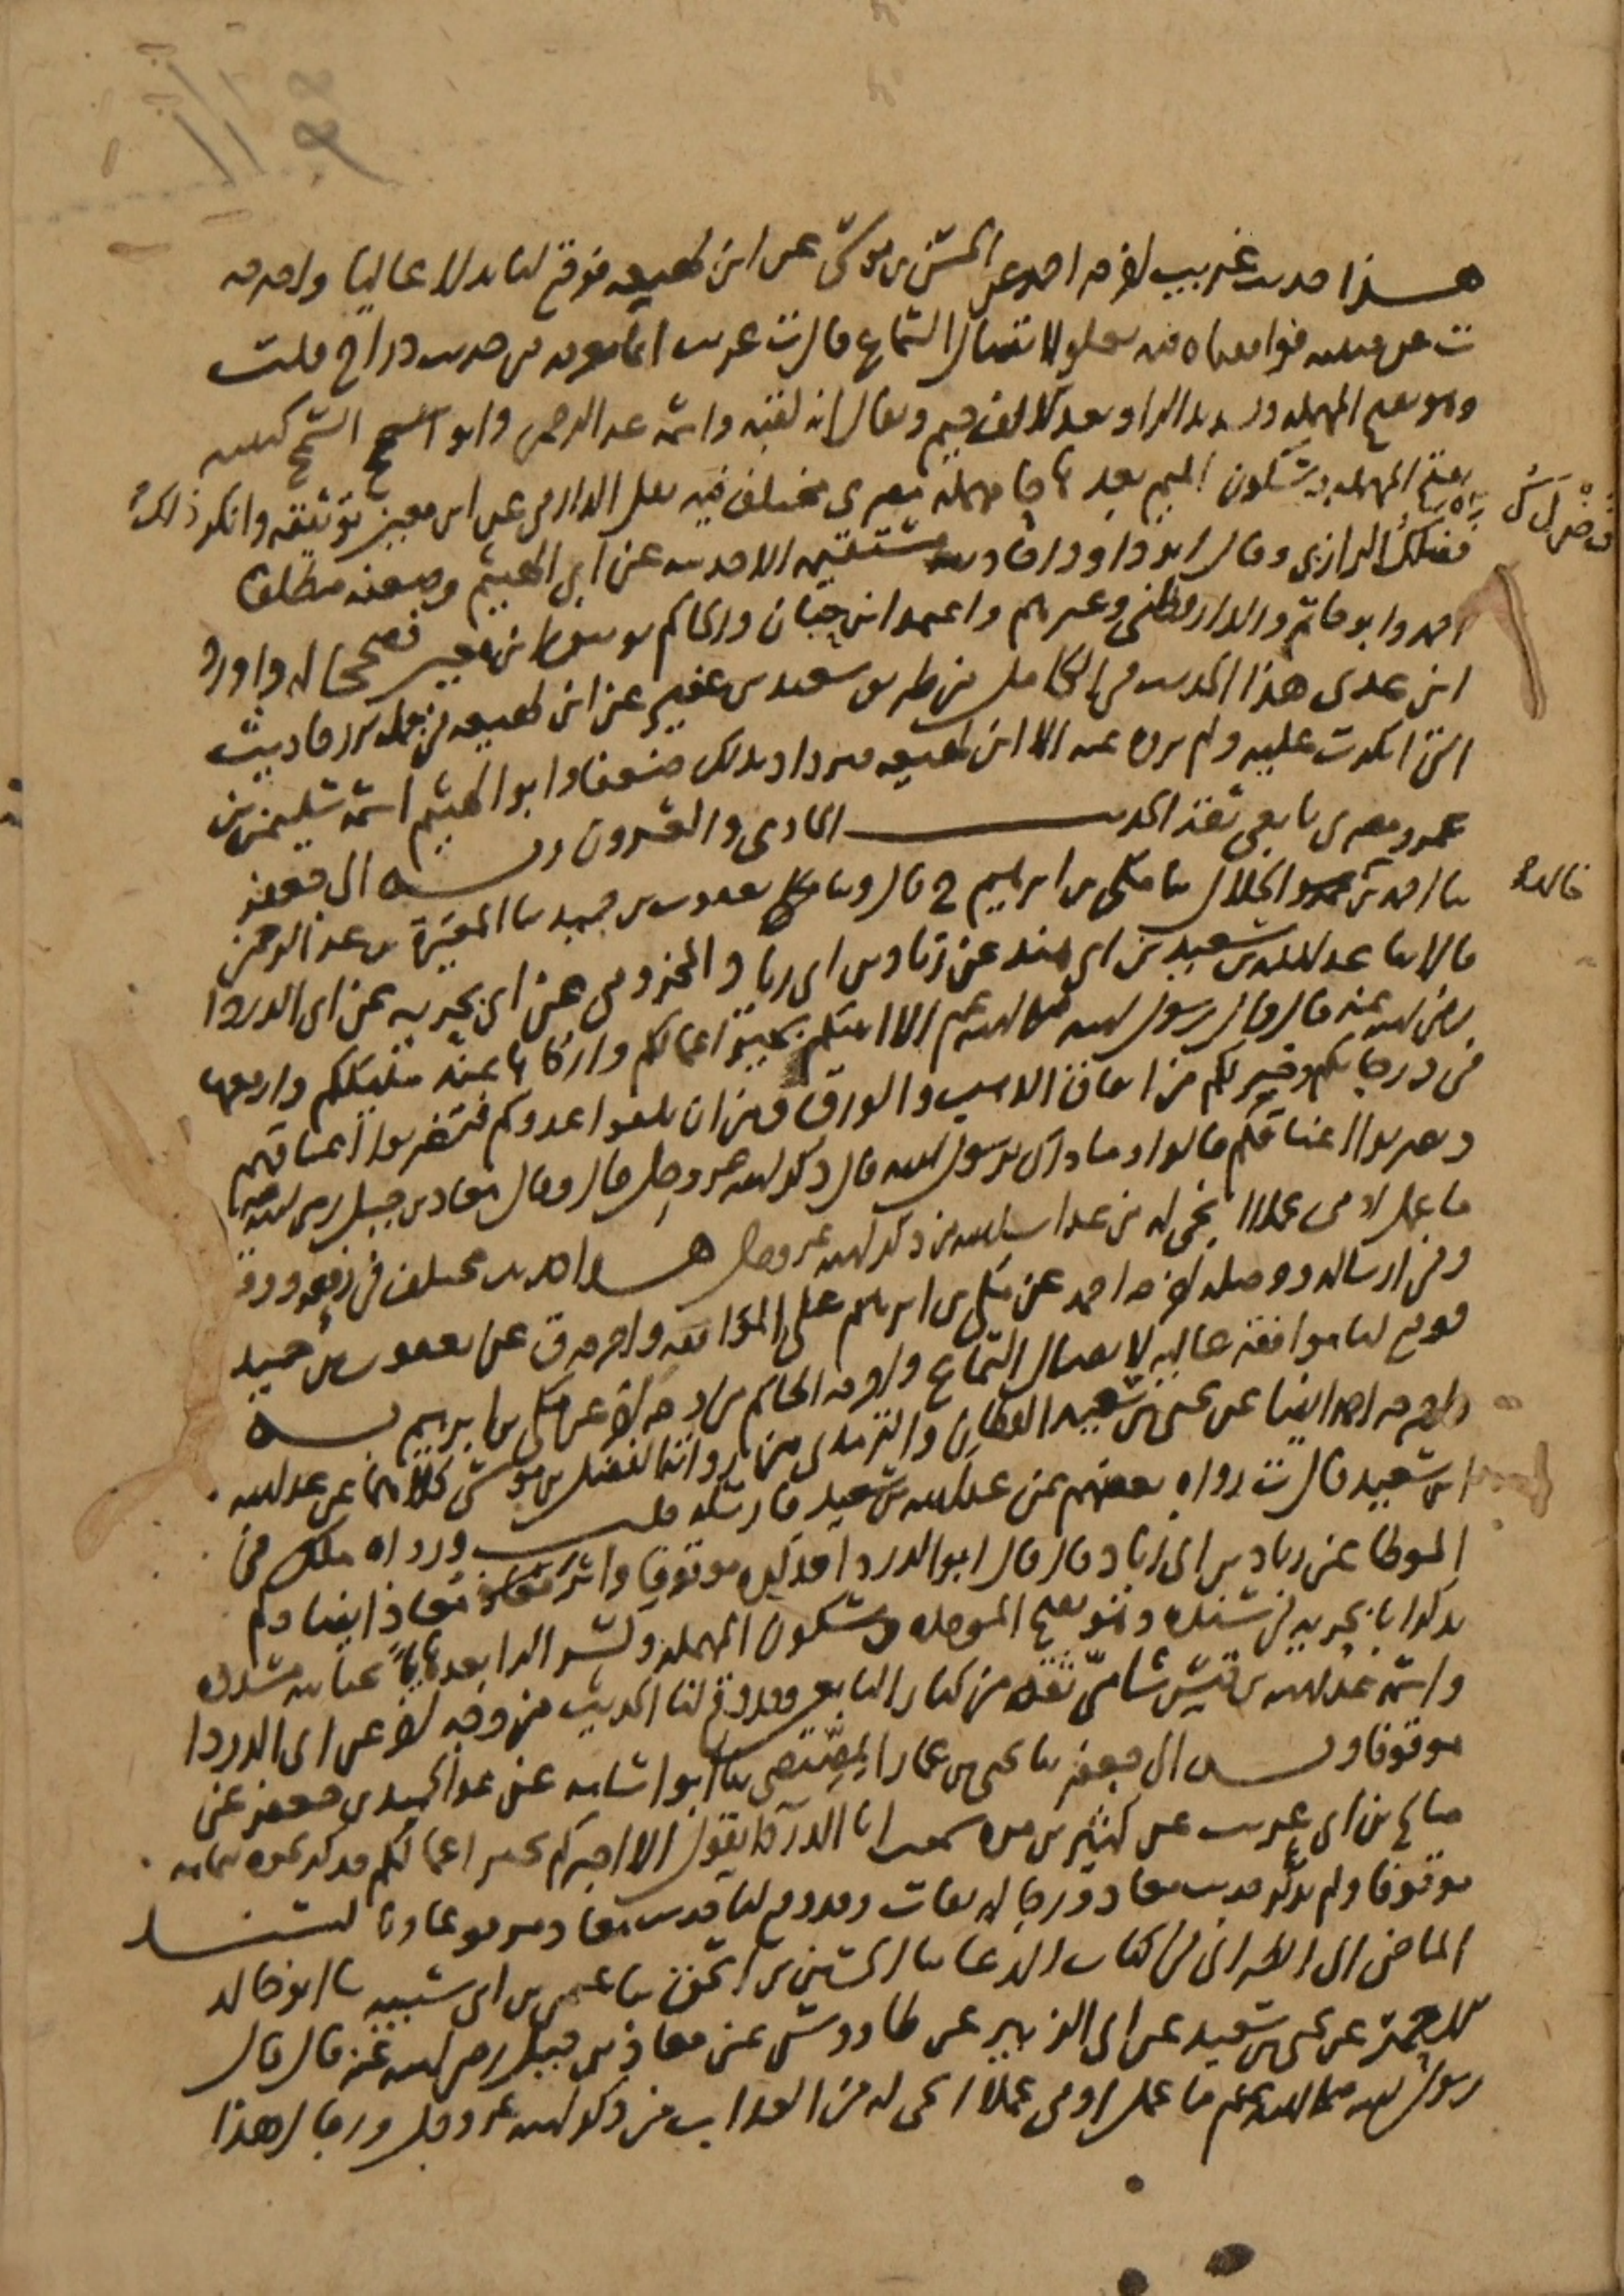 هذا حديث غريب اخرجه احمد عن الحسن بن موسى عن ابن لهيعة فوقع لنا بدلا عاليا واخرجه
ت عن قتيبة فوافقناه فيه بعلو لاتصال السماع قال ت غريب انما نعرفه من حديث دراج قلت
وهو بفتح المهملة وتشديد الراء وبعد الالف جيم ويقال انه لقبه واسمه عبد الرحمن وابو السمح كنيته
بفتح المهملة وسكون الميم بعدها حا مهملة مصري مختلف فيه نقل الدارمي عن ابن معين توثيقه وانكر ذلك
فضلك الرازي وقال ابو داود احاديثه مستقيمة الا حديثه عن ابي الهيثم وضعفه مطلقا
احمد وابو حاتم والدارقطني وغيرهم واعتمد ابن حبان والحاكم توثيق ابن معين فصححا له واورد
ابن عدي هذا الحديث في الكامل من طريق سعيد بن عفير عن ابن لهيعة في جملة احاديث
التي انكرت عليه ولم يروه عنه الا ابن لهيعة فيزداد بذلك ضعفا وابو الهيثم اسمه سليمن بن
عمرو مصري تابعي ثقة الحديث الحادي والعشرون وبه الى جعفر
ثنا احمد بن الخلال ثنا مكي بن ابرهيم ح قال وثنا يعقوب بن حميد ثنا المغيرة بن عبد الرحمن
قالا ثنا عبد الله بن سعيد بن ابي هند عن زياد بن ابي زياد المخزومي عن ابي بحرية عن ابي الدرداء
رضي الله عنه قال قال رسول الله صلى الله عليه وسلم الا انبئكم بخير اعمالكم وازكاها عند مليككم وارفعها
في درجاتكم وخير لكم من انفاق الذهب والورق ومن ان تلقوا عدوكم فتضربوا اعناقهم
ويضربوا اعناقكم قالوا وما ذاك يرسول الله قال ذكر الله عز وجل قال وقال معاذ بن جبل رضي الله عنه
ما عمل ادمي عملا انجى له من عذاب الله من ذكر الله عز وجل هذا حديث مختلف في رفعه ووقفه
وفي ارساله ووصله اخرجه احمد عن مكي بن ابرهيم على الموافقة واخرجه ق عن يعقوب بن حميد
فوقع لنا موافقة عالية لاتصال السماع واخرجه الحاكم من وجه اخر عن مكي بن ابرهيم به
واخرجه احمد ايضا عن يحيى بن سعيد القطان والترمذي من رواية الفضل بن موسى كلاهما عن عبد الله
ابن سعيد قال ت رواه بعضهم عن عبد الله بن سعيد فارسله قلت ورواه ملك في
الموطا عن زياد بن ابي زياد قال قال ابو الدرداء فذكره موقوفا واثر معاذ ايضا ولم
يذكر ابا بحرية في سنده وهو بفتح الموحدة وسكون المهملة وكسر الرا بعدها تحتانية مشددة
واسمه عبد الله بن قيس شامي ثقة من كبار التابعين وقد وقع لنا الحديث من وجه اخر عن ابي الدرداء
موقوفا وبه الى جعفر ثنا يحيى بن عمار المصيصي ثنا ابو اسامة عن عبد الحميد بن جعفر عن
صالح بن ابي عريب عن كثير بن مرة سمعت ابا الدرداء يقول الا اخبركم بخير اعمالكم فذكر نحوه بتمامه
موقوفا ولم يذكر حديث معاذ ورجاله ثقات وقد وقع لنا حديث معاذ مرفوعا وبالسند
الماضي الى الطبراني في كتاب الدعا ثنا الحسين بن اسحق ثنا عثمن بن ابي شيبة ثنا ابو خالد
الاحمر عن يحيى بن سعيد عن ابي الزبير عن طاووس عن معاذ بن جبل رضي الله عنه قال قال
رسول الله صلى الله عليه وسلم ما عمل ادمي عملا انجى له من العذاب من ذكر الله عز وجل ورجال هذا